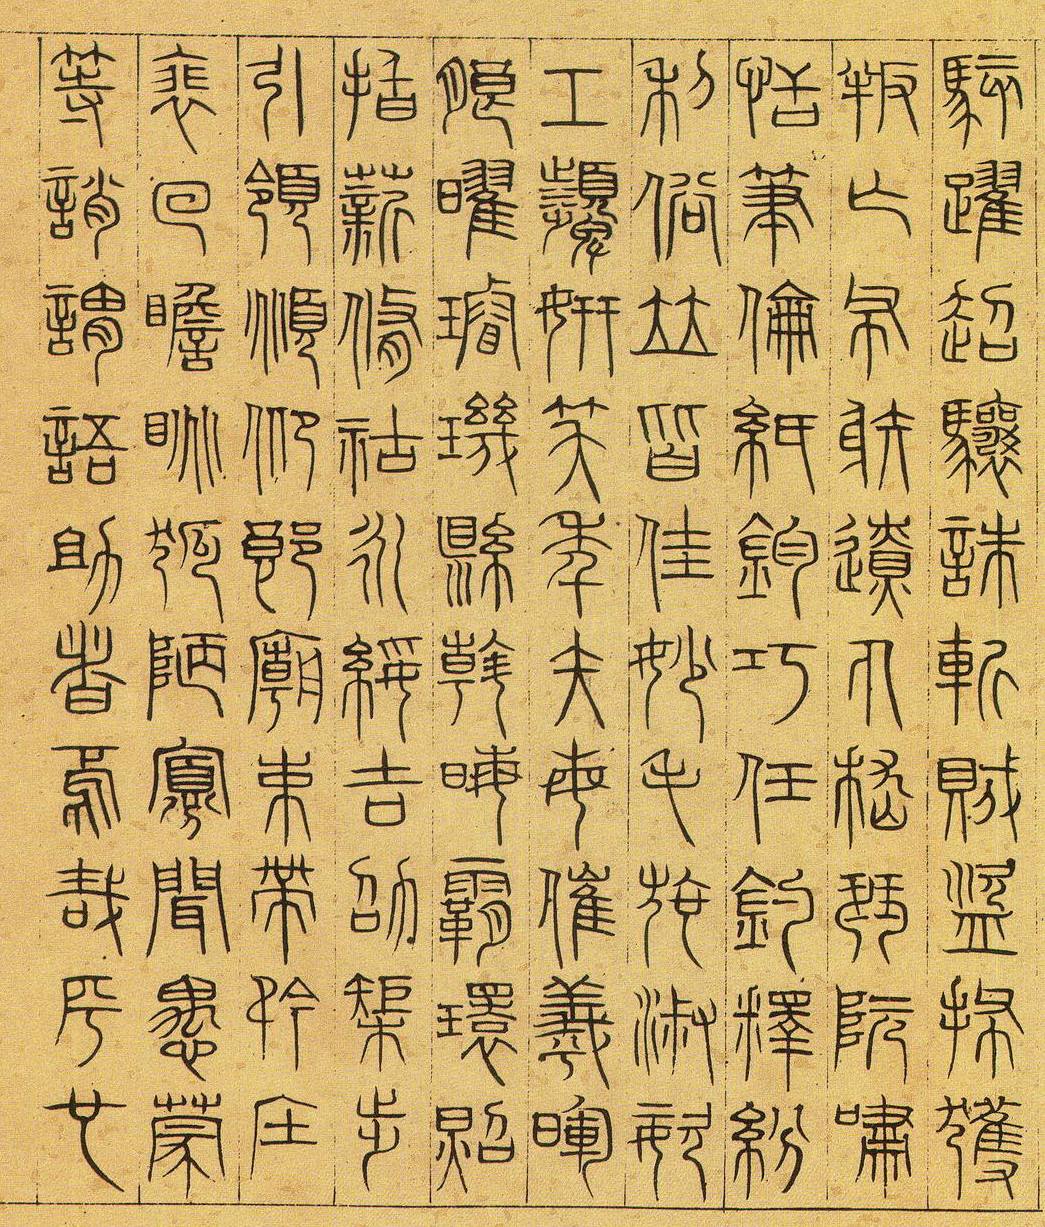 駭躍超驤誅斬賊盜捕獲
叛亡布射遼丸嵇琴阮嘯
恬筆倫紙鈞巧任釣釋紛
利俗並皆佳妙毛施淑姿
工顰妍笑年矢每催羲暉
朗曜璿璣縣斡晦霸環照
指薪脩祜永綏吉劭矩步
引領俯仰廊廟束帶矜莊
裴回瞻眺孤陋寡聞愚蒙
等誚謂語助者焉哉乎也